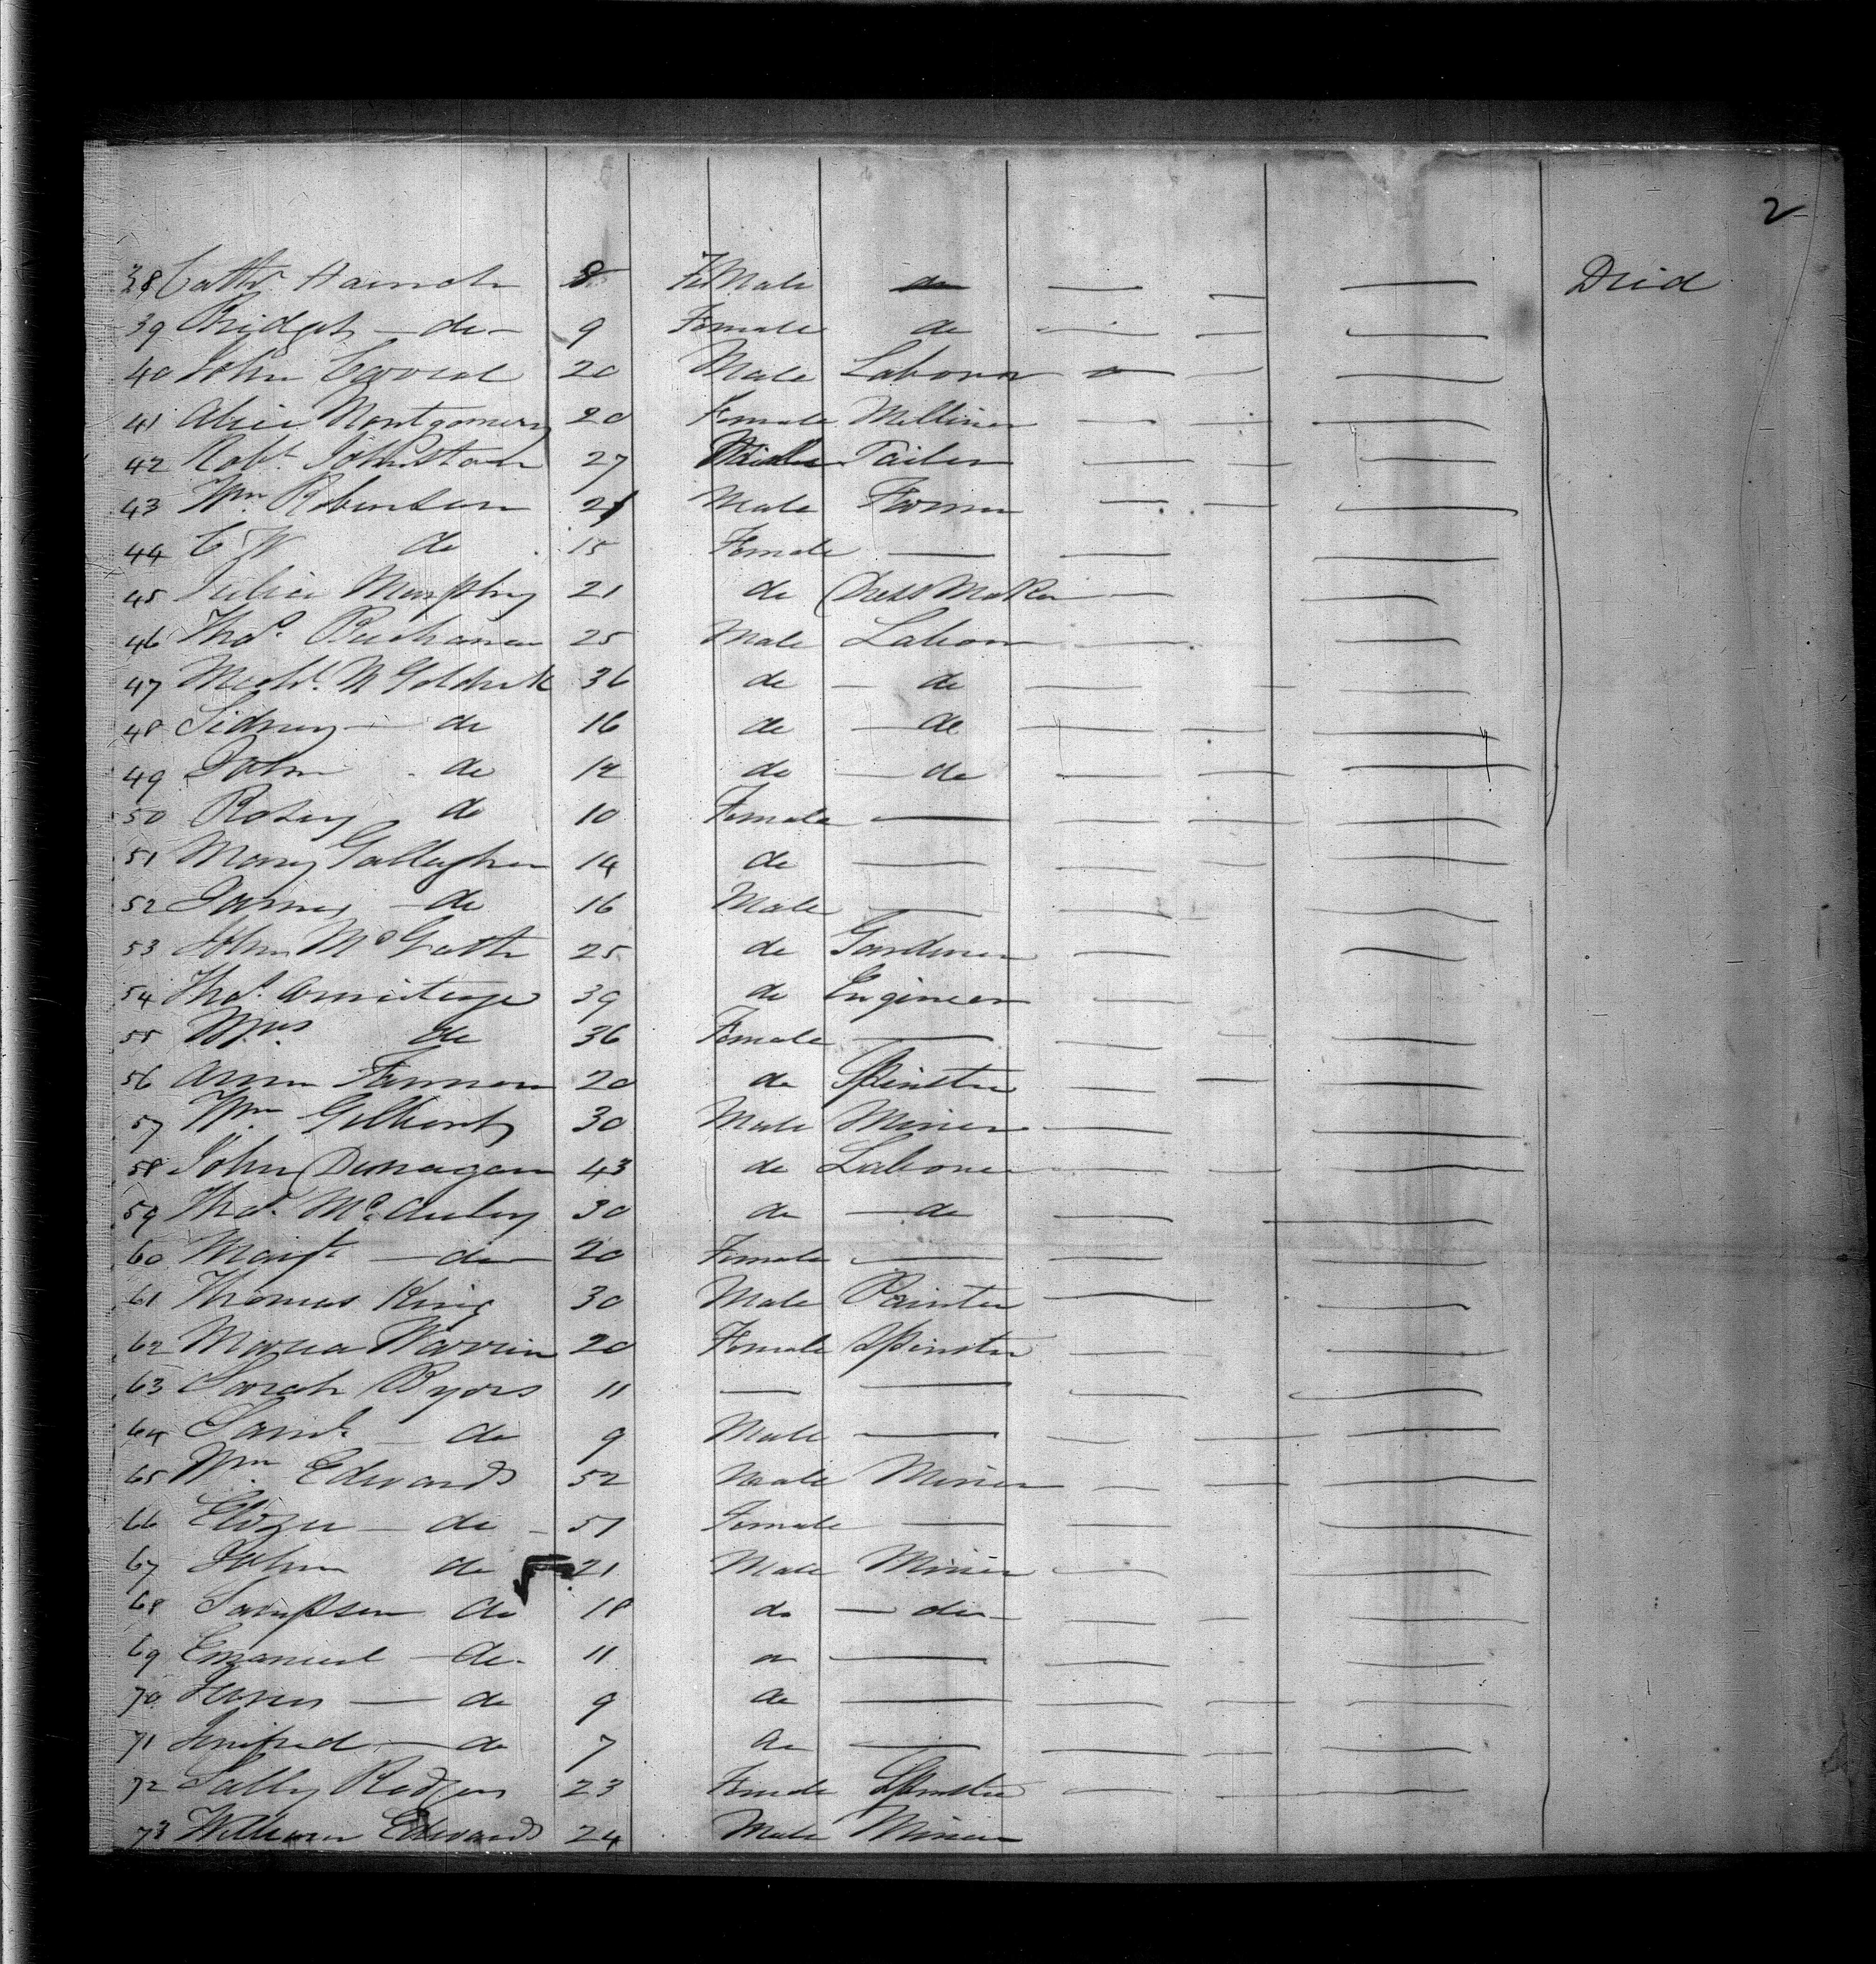 2
38 Cathe Hannah 8 Female do Died
39 Bridget do 9 Female do
40 John 20 Male Laborer
41 Alice Montgomery 20 Female Milliner
42 Robt. Johnston 27 Male Tailor
43 Wm Robinson 21 Male Farmer
44 C W do 15 Female
45 Julia Murphy 21 do Dress Maker
46 Thos. Buchanan 25 Male Labour
47 Michl. McGoldrick 36 do do
48 Sidney do 16 do do
49 John do 12 do do
50 Rosey do 10 Female
51 Mary Gallagher 14 do
52 James do 16 Male
53 John McGrath 25 do Gardener
54 Thos. Armitage 39 do Engineer
55 Mrs. do 36 Female
56 Ann 20 do Spinster
57 Wm Gilbert 30 Male Miner
58 John Dunagan 43 do Laborer
59 Thos. McAuley 30 do do
60 Margt do 20 Female
61 Thomas King 30 Male Painter
62 Maria Warrin 20 Female Spinster
63 Sarah Byers 11
64 Saml do 9 Male
65 Wm Edwards 52 Male Miner
66 Eliza do 51 Female
67 John do 21 Male Miner
68 Sampson do 18 do do
69 Emanuel do 11 do
70 do 9 do
71 do 7 do
72 Sally Rodgers 23 Female Spinster
73 William Edwards 24 Male Miner